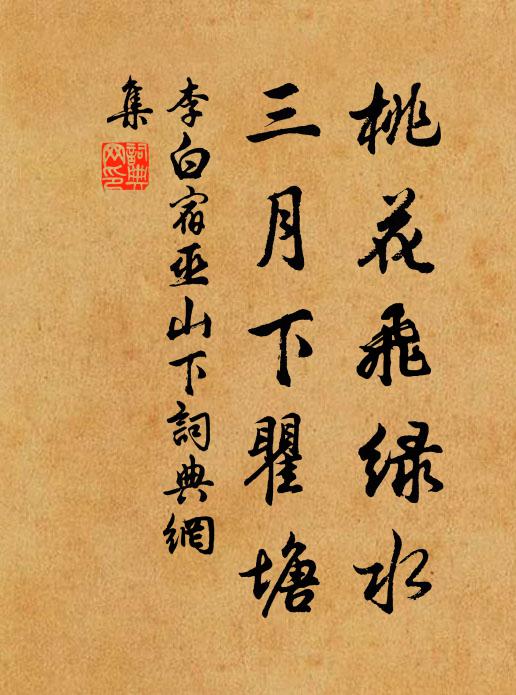 桃花飛緑水
三月下瞿塘
李白宿巫山下詞典網
集
詞典
网印